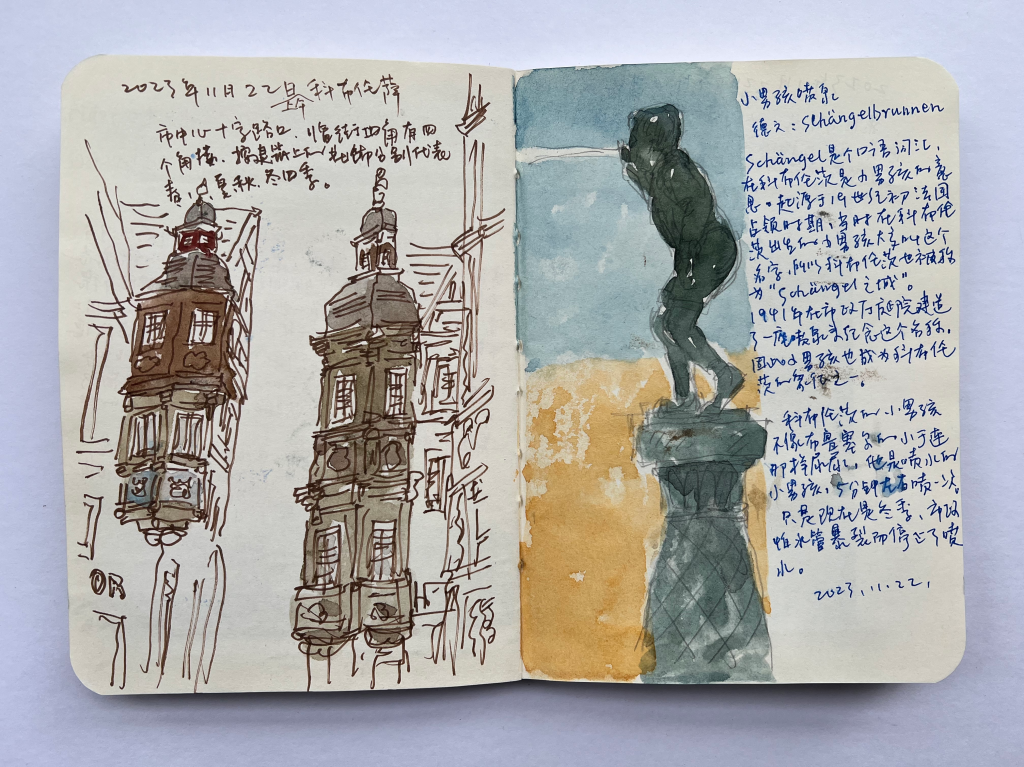 2023年11月22日 上午 科布伦茨
市中心十字路口,临街四角有四
个角楼,据说楼上的装饰分别代表
春、夏、秋、冬四季。
OR
小男孩喷泉
德文:Schängelbrunnen
Schängel是个口语词汇,
在科布伦茨是小男孩的意
思。起源于19世纪初法国
占领时期,当时在科布伦
茨出生的小男孩大多叫这个
名字,所以科布伦茨也被称
为“Schängel之城”。
1941年在市政厅庭院建造
了一座喷泉来纪念这个名称,
因而小男孩也成为科布伦
茨的象征之一。
科布伦茨的小男孩
不像布鲁塞尔的小于连
那样尿尿,他是喷水的
小男孩,5分钟左右喷一次。
只是现在是冬季,市政
怕水管暴裂而停止了喷
水。
2023.11.22.